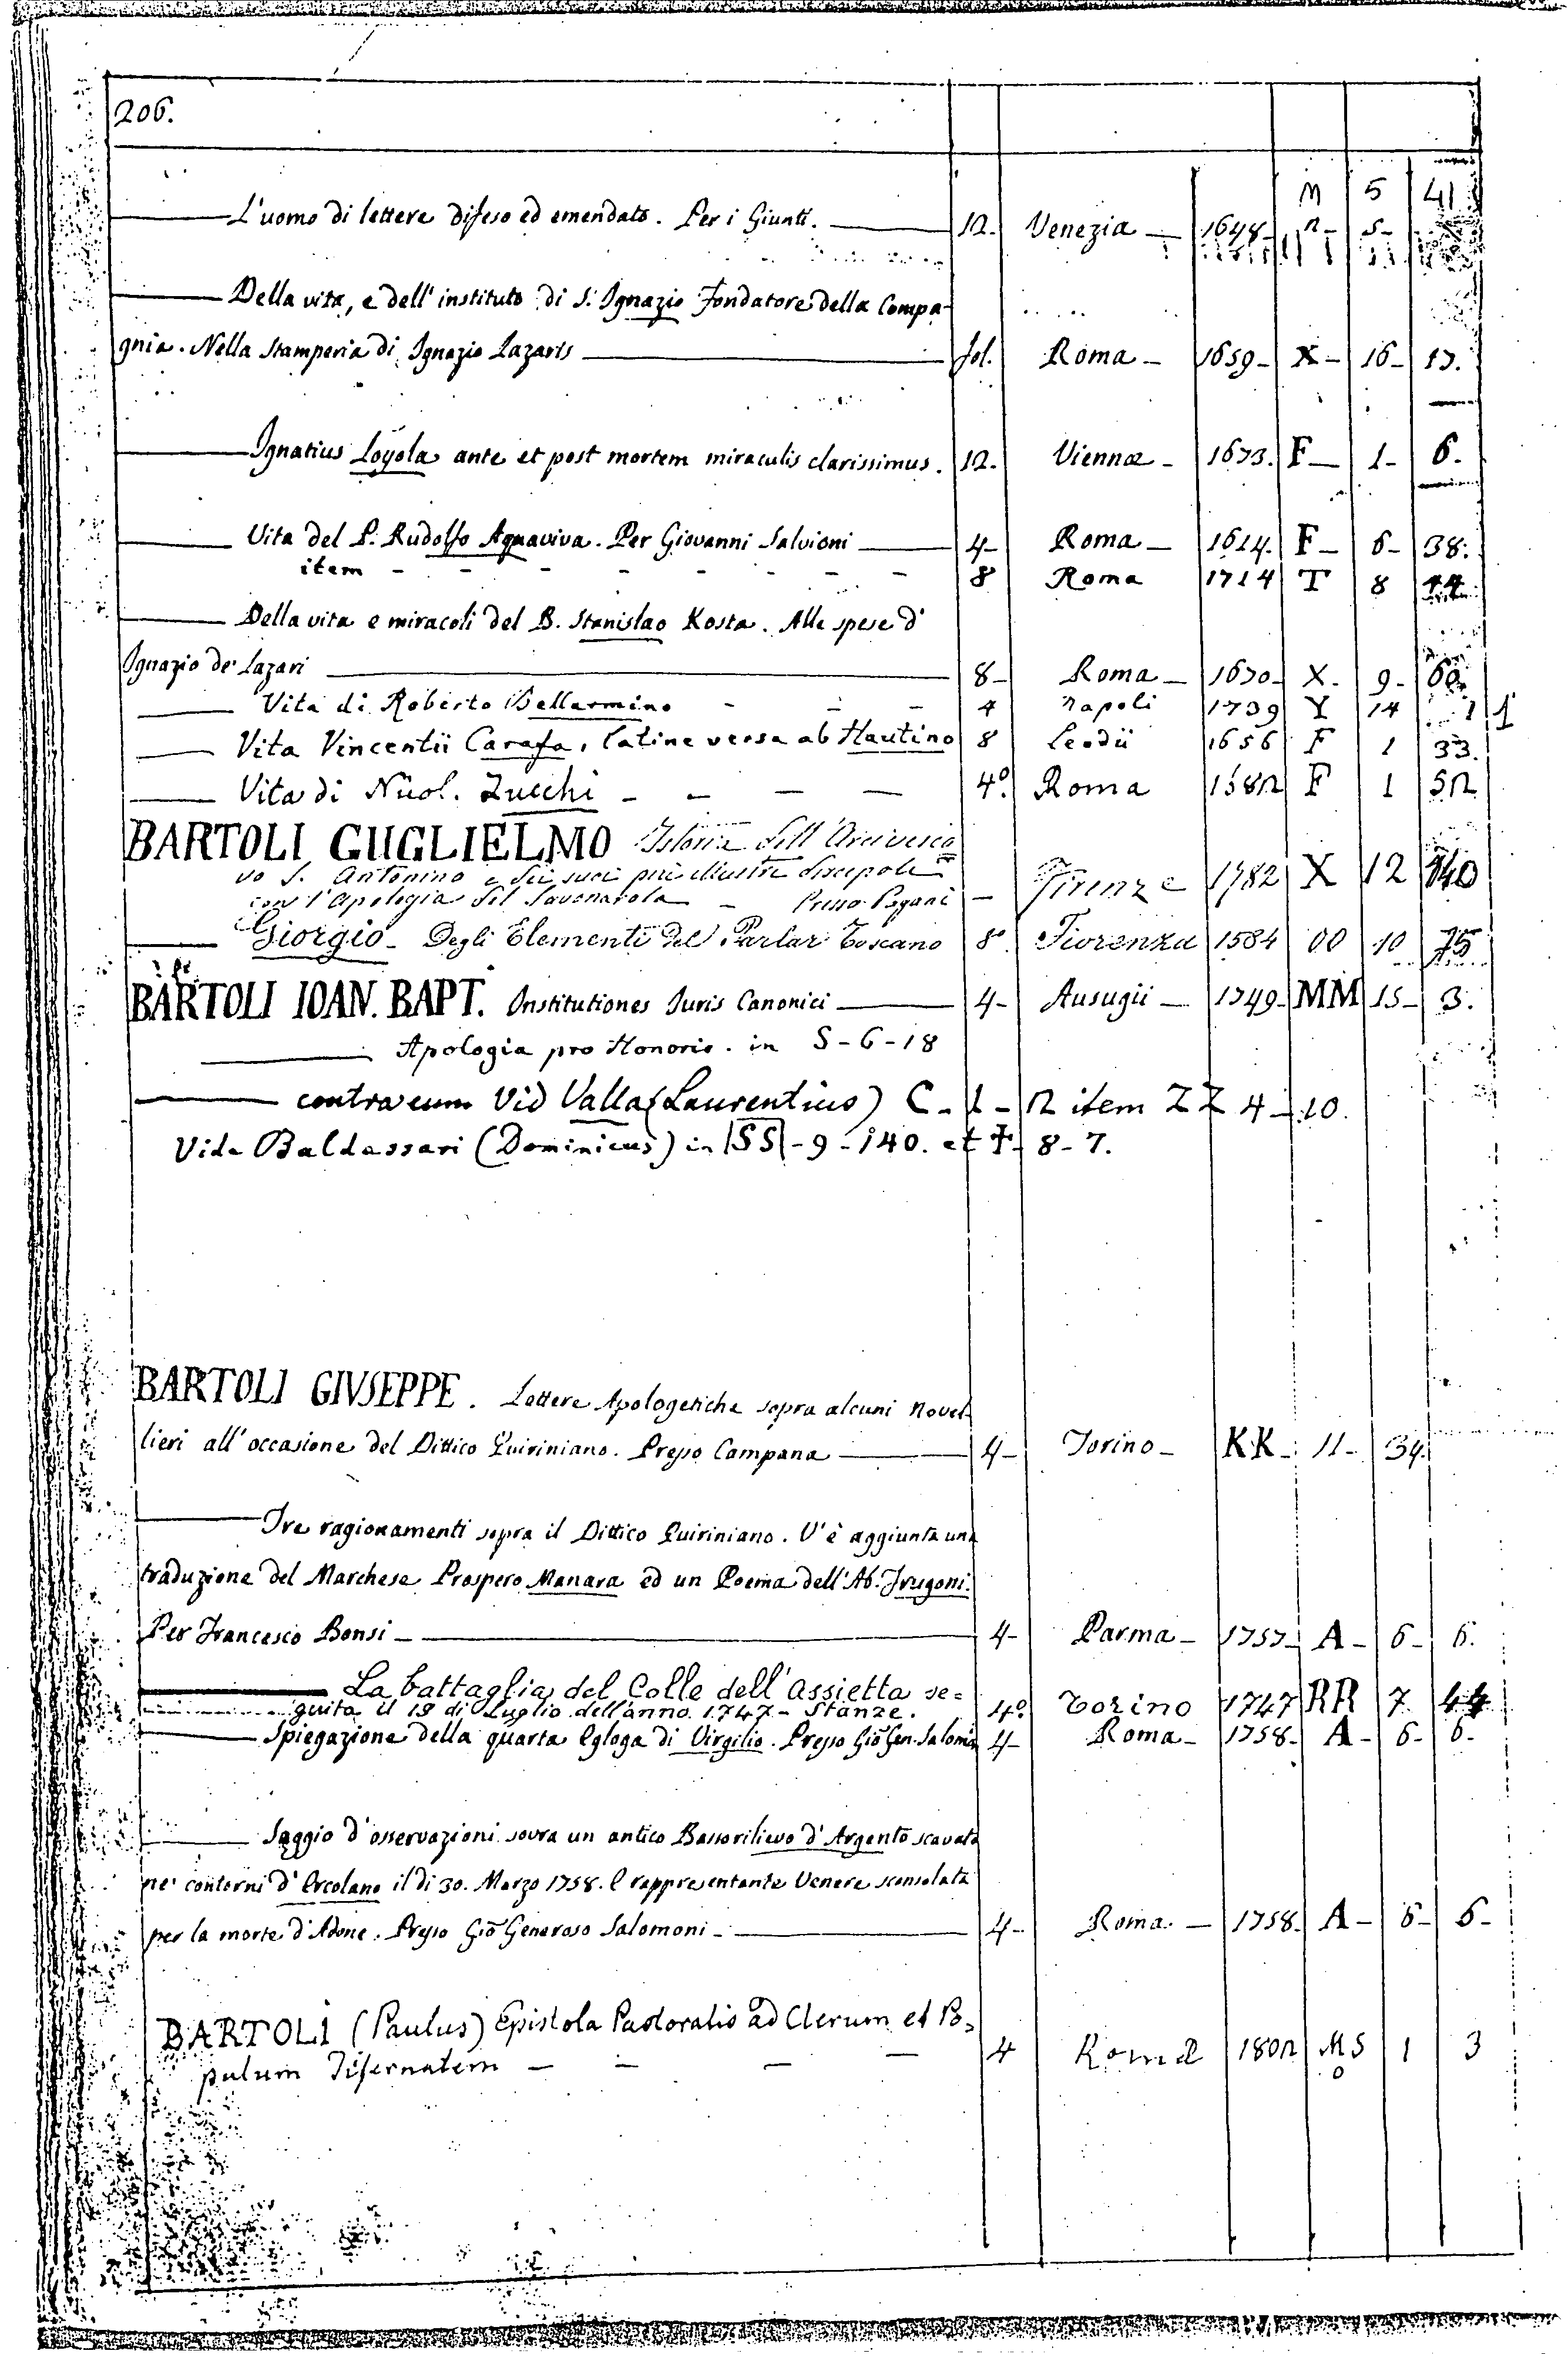 206.
M 5 41
L'uomo di lettere difeso ed emendato. Per i Giunti. 12. Venezia 1648 n 5
Della vita, e dell'instituto di S. Ignazio Fondatore della Compa-
gnia. Nella Stamperia di Ignazio Lazaris fol. Roma 1659 X 16 17.
Ignatius Loyola ante et post mortem miraculis clarissimus. 12. Viennæ 1673. F 1 6.
Vita del P. Rudolfo Aquaviva. Per Giovanni Salvioni 4 Roma 1614. F 6 38.
item 8 Roma 1714 T 8 44
Della vita e miracoli del B. Stanislao Kosta. Alle spese d'
Ignazio de' Lazari 8 Roma 1670 X 9 60.
Vita di Roberto Bellarmino 4 Napoli 1739 Y 14 1 1
Vita Vincentii Carafa, latine versa ab Hautino 8 Leodii 1656 F 1 33.
Vita di Nicol. Zucchi 4º Roma 1682 F 1 52
BARTOLI GUGLIELMO Istoria dell'Arcivesco
vo S. Antonino e dei suoi più illustri discepoli
con l'Apologia del Savonarola Presso Pagani Firenze 1782 X 12 140
Giorgio Degli Elementi del Parlar Toscano 8º Fiorenza 1584 OO 10 75
BARTOLI IOAN. BAPT. Institutiones Juris Canonici 4 Ausugii 1749 MM 15 3.
Apologia pro Honorio. in S-6-18
contra eum Vid Valla (Laurentius) C-1-2 item ZZ 4-10.
Vide Baldassari (Dominicus) in SS-9-140. et F-8-7.
BARTOLI GIVSEPPE. Lettere Apologetiche sopra alcuni Novel-
lieri all'occasione del Dittico Quiriniano. Presso Campana 4 Torino KK 11 34.
Tre ragionamenti sopra il Dittico Quiriniano. V'è aggiunta una
traduzione del Marchese Prospero Manara ed un Poema dell'Ab. Frugoni.
Per Francesco Bonsi 4 Parma 1757 A 6 6.
La battaglia del Colle dell'assietta se=
guita il 19 di Luglio dell'anno 1747 - Stanze. 4º Torino 1747 RR 7 44
Spiegazione della quarta Egloga di Virgilio. Presso Giõ Gen. Salomõi 4 Roma 1758 A 6 6
Saggio d'osservazioni sovra un antico Bassorilievo d'Argento scavato
ne' contorni d'Ercolano il di 30. Marzo 1758. E rappresentante Venere sconsolata
per la morte d'Adone. Presso Giõ Generoso Salomoni 4 Roma. 1758 A 6 6
BARTOLI (Paulus) Epistola Pastoralis ad Clerum et Po=
pulum Tifernatem 4 Romæ 1802 MS 1 3
o